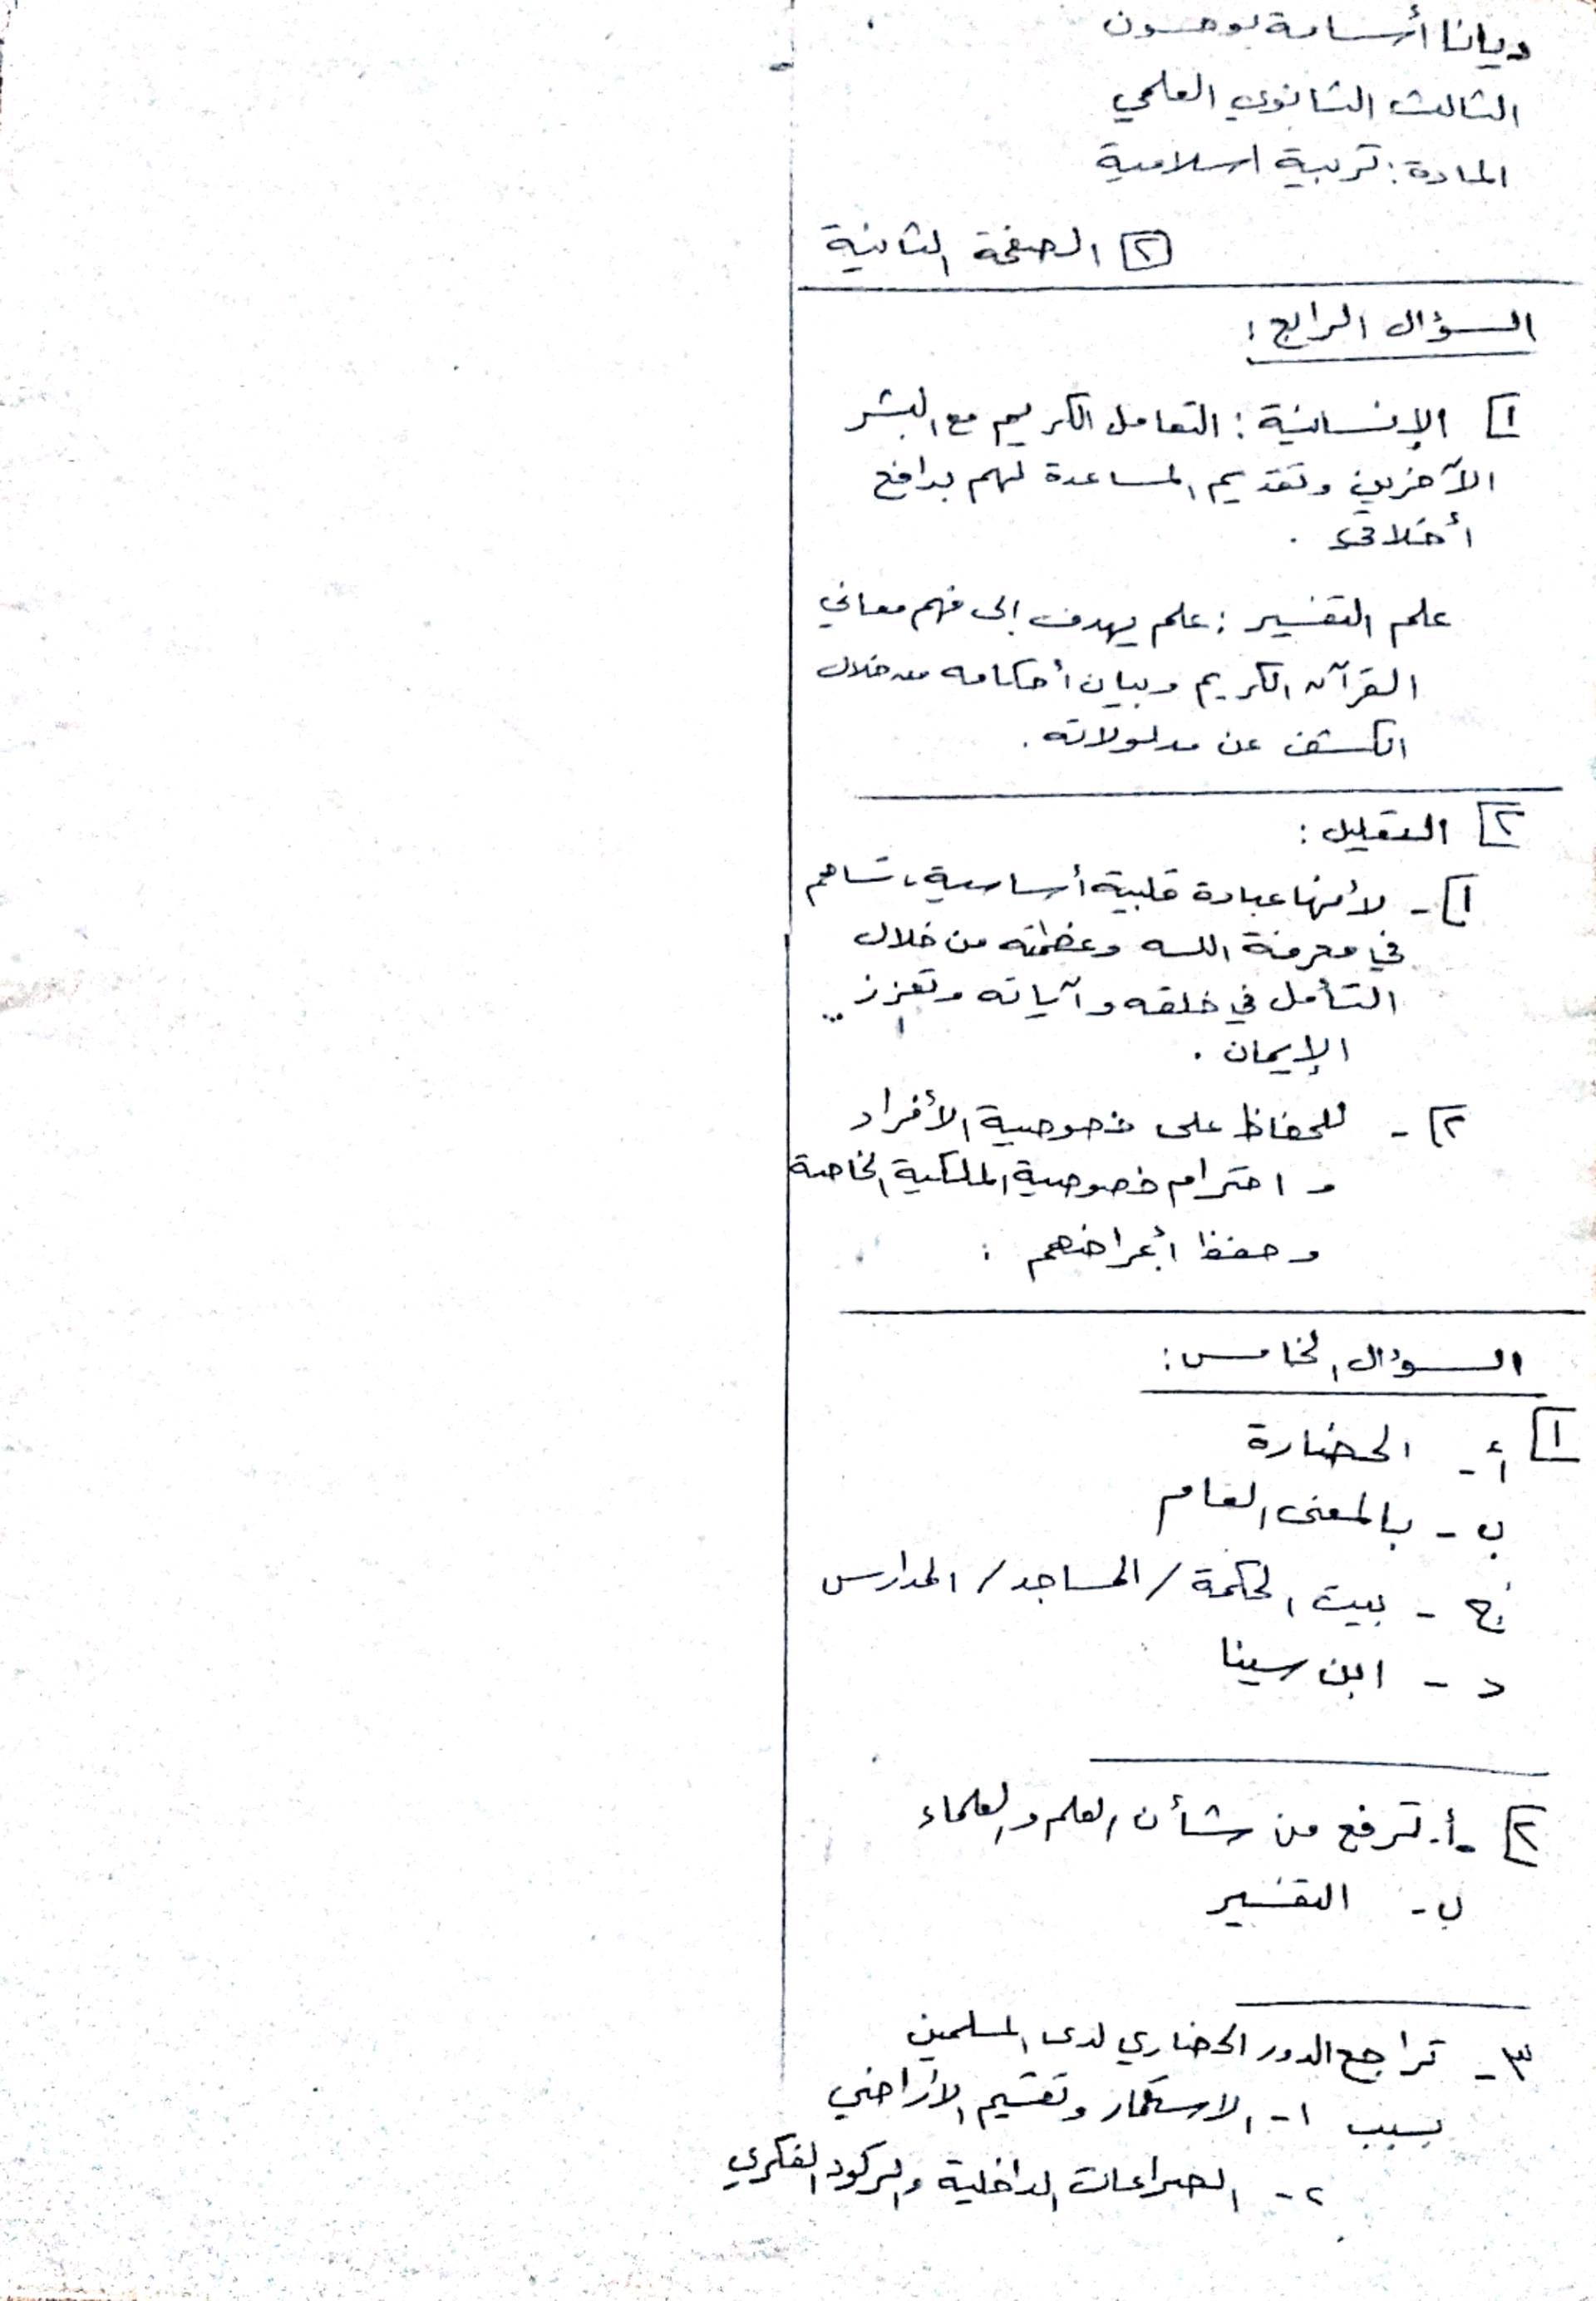 ديانا أسامة بوحسون
الثالث الثانوي العلمي
المادة: تربية اسلامية
٢ الصفحة الثانية
السؤال الرابع:
١ الإنسانية: التعامل الكريم مع البشر
الآخرين وتقديم المساعدة لهم بدافع
أخلاقي.
علم التفسير: علم يهدف إلى فهم معاني
القرآن الكريم وبيان أحكامه من خلال
الكشف عن مدلولاته.
٢ التعليل:
١- لأنها عبادة قلبية أساسية، تساهم
في معرفة الله وعظمته من خلال
التأمل في خلقه وآياته وتعزيز
الإيمان.
٢- للحفاظ على خصوصية الأفراد
و احترام خصوصية الملكية الخاصة
وحفظ أعراضهم.
السؤال الخامس:
١ أ- الحضارة
ب- بالمعنى العام
ج- بيت الحكمة / المساجد / المدارس
د- ابن سينا
٢ أ- ترفع من شأن العلم والعلماء
ب- التفسير
٣- تراجع الدور الحضاري لدى المسلمين
بسبب ١- الاستعمار وتقسيم الأراضي
٢- الصراعات الداخلية والركود الفكري